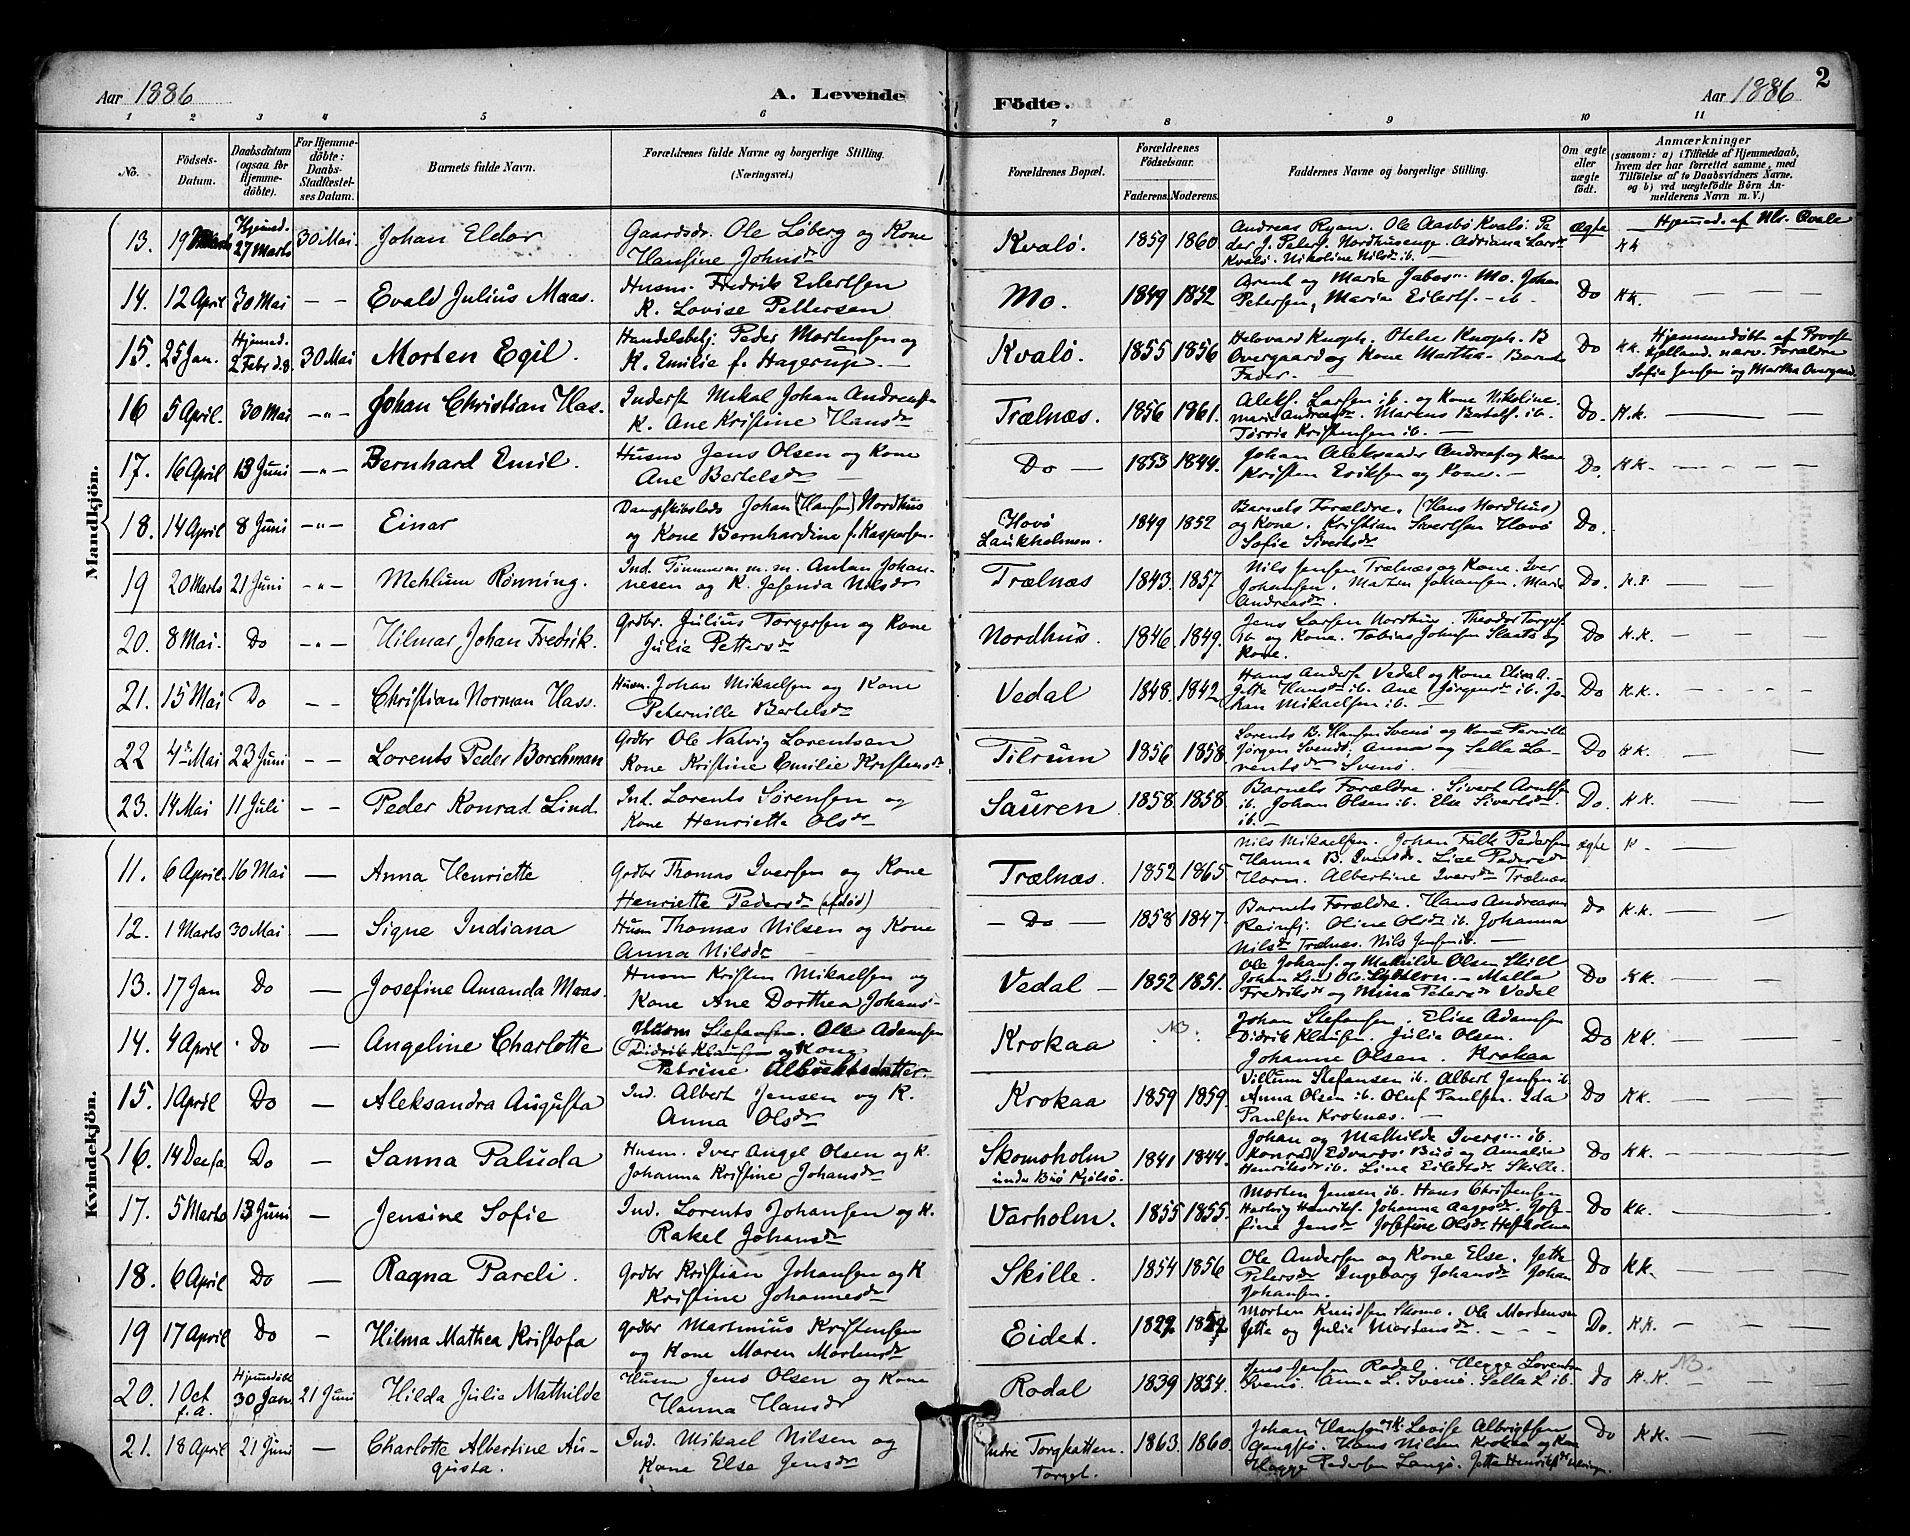 Aar 1886 A. Levende Födte. Aar 1886 2
1 2 3 4 5 6 7 8 9 10 11
No. Födsels-Datum. Daabsdatum (ogsaa for Hjemmedöbte). For Hjemmedöbte: Daabs-Stadfæstelses Datum. Barnets fulde Navn. Forældrenes fulde Navne og borgerlige Stilling. (Næringsvei.) Forældrenes Bopæl. Forældrenes Födselsaar. Faderens. Moderens. Faddernes Navne og borgerlige Stilling. Om ægte eller uægte födt. Anmærkninger (saasom: a) i Tilfælde af Hjemmedaab, hvem der har forrettet samme, med Tilföielse af to Daabsvidners Navne, og b) ved uægtefödte Börn Anmelderens Navn m. V.)
Mandkjön.
13. 19 Marts Hjemmed. 27 Marts 30 Mai Johan Eldor Gaardbr. Ole Löberg og Kone Hansine Johnsdr Kvalö. 1859 1860 Andreas Ryan. Ole Aasbö Kvalö. Peder J. Peters. Nordhuseng. Adriana Larsdr Kvalö. Nikoline Nilsdr ib. ægte Hjemmed. af Nls. Qvale KK
14. 12 April 30 Mai - - Evald Julius Maas. Husm. Fredrik Eilertsen K. Lovise Pettersen Mo. 1849 1852 Arent og Maria Jabos. Mo. Johan Petersen, Maria Eilerts. - ib. Do KK
15. 25 Jan. Hjemmed. 2 Febr d.å 30 Mai Morten Egil. Handelsbetj. Peder Mortensen og K. Emilie f. Hagerup. Kvalö. 1855 1856 Helevard Knoph. Otelie Knoph. B Overgaard og Kone Martha. Barnets Fader. Do KK. Hjemmedöbt af Provst Hjelland. nærv. Forældre Sofie Jensen og Martha Overgaard.
16 5 April. 30 Mai -"- Johan Christian Has. Inderst Mikal Johan Andreass. K. Ane Kristine Hansdr Trælnæs. 1856 1861. Aleks. Larsen ib. og Kone Nikoline. Marie Andreasdr. Marens Bertels. ib. Törris Kristensen ib. Do. K.K.
17. 16 April 13 Juni -"- Bernhard Emil. Husm Jens Olsen og Kone Ane Bertelsdr Do - 1853 1844. Johan Aleksander Andreas og Kone Kristen Eriksen og Kone. Do. KK.
18. 14 April 8 Juni -"- Einar Dampskibsleds Johan (Hansen) Nordhus og Kone Bernhardine f. Kaspersen. Hovö Laukholmen. 1849 1852 Barnets Forældre. (Hans Nordhus) og Kone. Kristian Sivertsen Hovö Sofie Sivertsdr Do.
19 20 Marts 21 Juni -"- Mehlum Rönning. Ind. Tömmerm. m.m. Antan Johannesen og K. Jesenda Nilsdr Trælnæs 1843. 1857 Nils Jensen Trælnæs og Kone. Iver Johansen. Marten Johansen. Maria Andreasdr. Do. K.K.
20. 8 Mai. Do -"- Hilmar Johan Fredrik. Grdbr. Julius Torgersen og Kone Julie Pettersdr Nordhus. 1846 1849. Jens Larsen Nordhus. Theodor Torgers. ib og Kone. Tobias Johnsen Slaata og Kone. Do K.K.
21. 15 Mai Do - - Christian Norman Hass. Husm. Johan Mikaelsen og Kone Peternille Bertelsdr Vedal 1848. 1842 Hans Anders. Vedal og Kone Elisa. Jetta Hansdr ib. Ane Jörgensdr ib. Johan Mikaelsen ib. Do K.K.
22 4de Mai 23 Juni - - Lorents Peder Borchman Grdbr Ole Natvig Lorentsen Kone Kristine Emilie Kristensdr Tilrum 1856 1858. Lorents B. Hansen Svenö og Kone Pernille Jörgen Svendö, Anna og Selle Lorentsdr Svenö. Do KK.
23. 14 Mai 11 Juli - - Peder Konrad Lind. Ind. Lorents Sörensen og Kone Henriette Olsdr Sauren 1858. 1858. Barnets Forældre. Sivert Arntsen ib. Johan Olsen ib. Else Sivertsdr. ib. Do. KK.
Kvindekjön.
11. 6 April. 16 Mai — Anna Henriette Grdbr Thomas Iversen og Kone Henriette Pedersdr (afdöd) Trælnæs. 1852 1865. Nils Mikaelsen. Johan Falk Pedersen Hanna B. Iversdr. Lise Pedersdr Horn. Albertine Iversdr Trælnæs ægte K
12. 1 Marts 30 Mai — Signe Indiana Husm Thomas Nilsen og Kone Anna Nilsdr - Do - 1858 1847. Barnets Forældre. Hans Andreasen Reinfj. Oline Olsdr ib. Johanna Nilsdr Trælnæs. Nils Jensen ib. Do K.K.
13. 17 Jan Do — Josefine Amanda Maas. Husm Kristen Mikaelsen og Kone Ane Dorthea Johans- Vedal - 1852 1851. Ole Johans. og Mathilde Olsen Skill Johan Lind Ols. - Malla Fredriksdr og Mina Petersdr Vedal Do KK
14. 4 April Do — Angeline Charlotte Husm Stefansen. Ole Adamsen Didrik Klausen og Kone Petrine Albrektsdatter. Krokaa NB. Johan Stefansen. Elise Adamsen Didrik Klausen. Julie Olsen. Johanne Olsen. Krokaa Do KK.
15. 1 April Do — Aleksandra Augusta Ind. Albert Jensen og K. Anna Olsdr Krokaa 1859 1859. Villum Stefansen ib. Albert Jensen ib. Anna Olsen ib. Oluf Paulsen. Ida Paulsen Kroknæs. Do KK.
16. 14 Dec f.a. Do — Sanna Paluda Husm. Iver Angel Olsen og K. Johanna Kristine Johansdr Skomoholm under Buö Kjölsö. 1841 1844. Johan og Mathilde Ivers. ib. Konrad Edvards. Buö og Amalie Henriksdr ib. Line Eilertsdr Skille. Do KK.
17. 5 Marts 13 Juni — Jensine Sofie Ind. Lorents Johansen og K. Rakel Johansdr Varholm. 1855 1855. Morten Jensen ib. Hans Christensen Hartvig Henriks. Johanna Aagesdr. Josefine Jensdr Josefine Olsdr Hestholmen Do KK.
18. 6 April Do — Ragna Pareli. Grdbr Kristian Johansen og K Kristine Johannesdr Skille. 1854 1856 Ole Andersen og Kone Else. Jette Petersdr Ingeborg Johansdr Johan Johansen. Do KK.
19 17 April Do - Hilma Mathea Kristofa Grdbr Martinius Kristensen og Kone Maren Mortensdr Eidet. 1822 1852 Morten Knudsen Skomo. Ole Mortensen Jetta og Julie Mortensdr. Do. K.K.
20. 1 Oct f.a. Hjemmedöbt 30 Jan. 21 Juni Hilda Julia Mathilde Husm Jens Olsen og Kone Hanna Hansdr Rodal 1839 1854. Jens Jensen Rodal. Hegge Lorents. Svenö. Anna L. Svenö. Sella L ib. Do K.K. NB.
21. 18 April 21 Juni — Charlotte Albertine Augusta. Ind. Mikael Nilsen og Kone Else Jensdr Indre Torghatten. Torget. 1863. 1860. Johan Hansen K. Lovise Albrigtsen Gangstö. Hans Nilsen Krokaa og Kone Hagge Pedersen Langö. Jette Henriks Do KK.